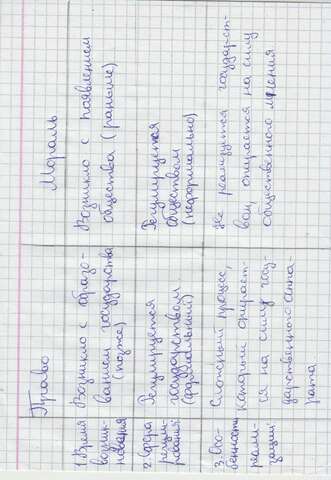 Право
Мораль
1. Время
возник-
новения
Возникло с образо-
ванием государства
(позже)
Возникло с появлением
общества (раньше)
2. Сфера
регули-
рования
Регулируется
государством
(формальный)
Регулируется
обществом
(неформально)
3. Осо-
бенность
реали-
зации
Сложный процесс,
который опирает-
ся на силу госу-
дарственного аппа-
рата
Не реализуется государст-
вом, опирается на силу
общественного мнения